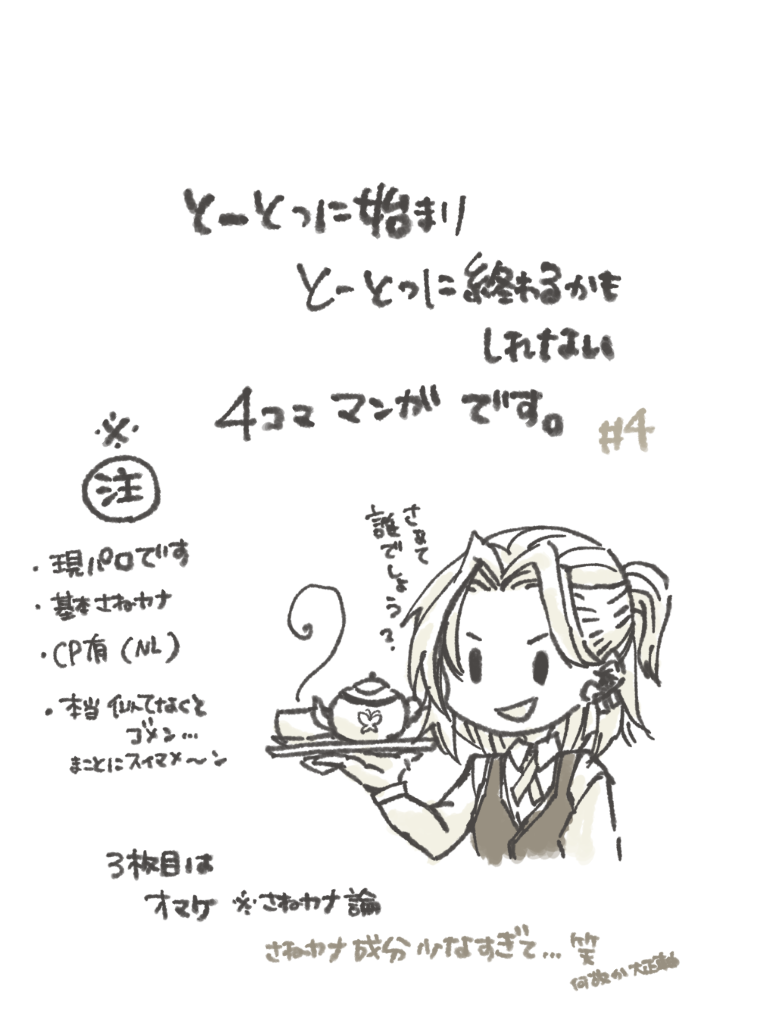 とーとつに始まり
とーとつに終わるかも
しれない
4コママンガです。
#4
※
注
・現パロです
・基本さねカナ
・CP有（NL）
・本当似てなくと
ゴメン…
まことにスイマメ〜ン
さぁて
誰でしょう？
3枚目は
オマケ ※さねカナ論
さねカナ成分少なすぎて…笑
何故か大正軸